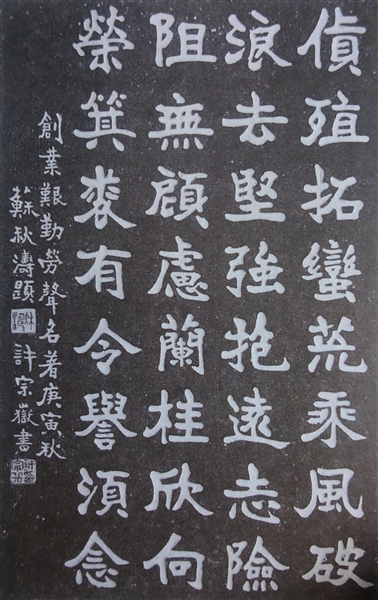 偵殖拓蠻荒乘風破
浪去堅強抱遠志險
阻無顧慮蘭桂欣向
榮箕裘有令譽須念
創業艱勤勞聲名著庚寅秋
蘇秋濤題 許宗嶽書